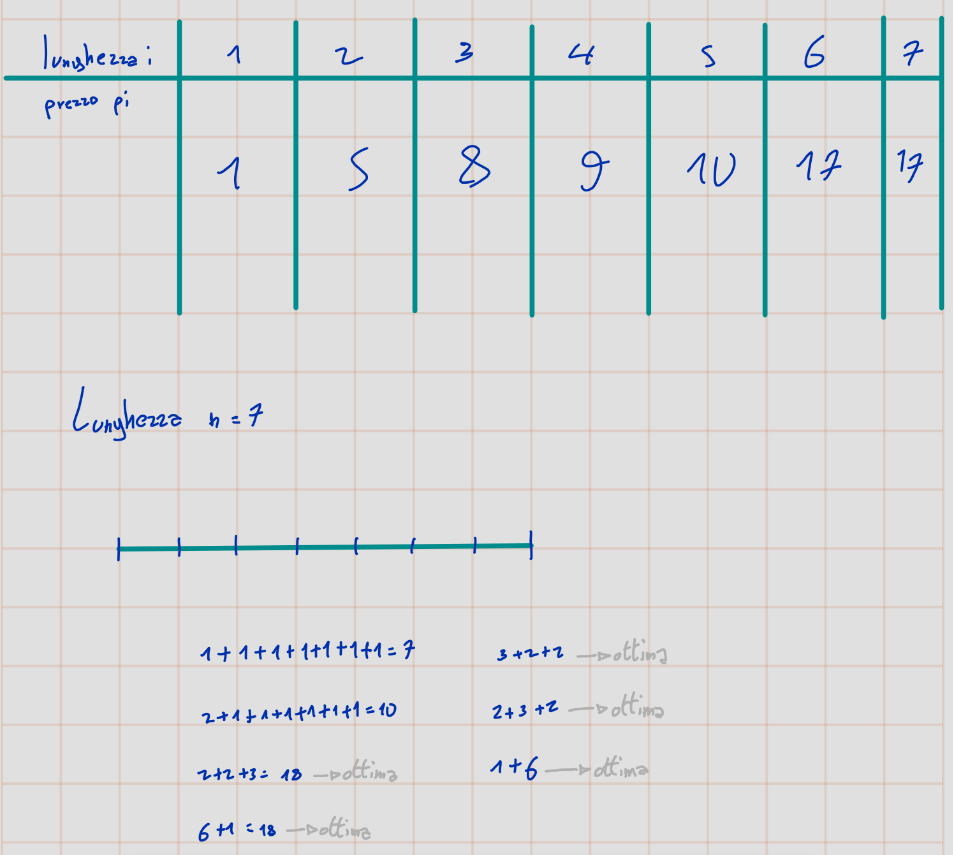 lunghezza i 1 2 3 4 5 6 7
prezzo pi
1 5 8 9 10 17 17
Lunghezza n = 7
1 + 1 + 1 + 1 + 1 + 1 + 1 = 7
2 + 1 + 1 + 1 + 1 + 1 + 1 = 10
2 + 2 + 3 = 18 → ottima
6 + 1 = 18 → ottima
3 + 2 + 2 → ottima
2 + 3 + 2 → ottima
1 + 6 → ottima